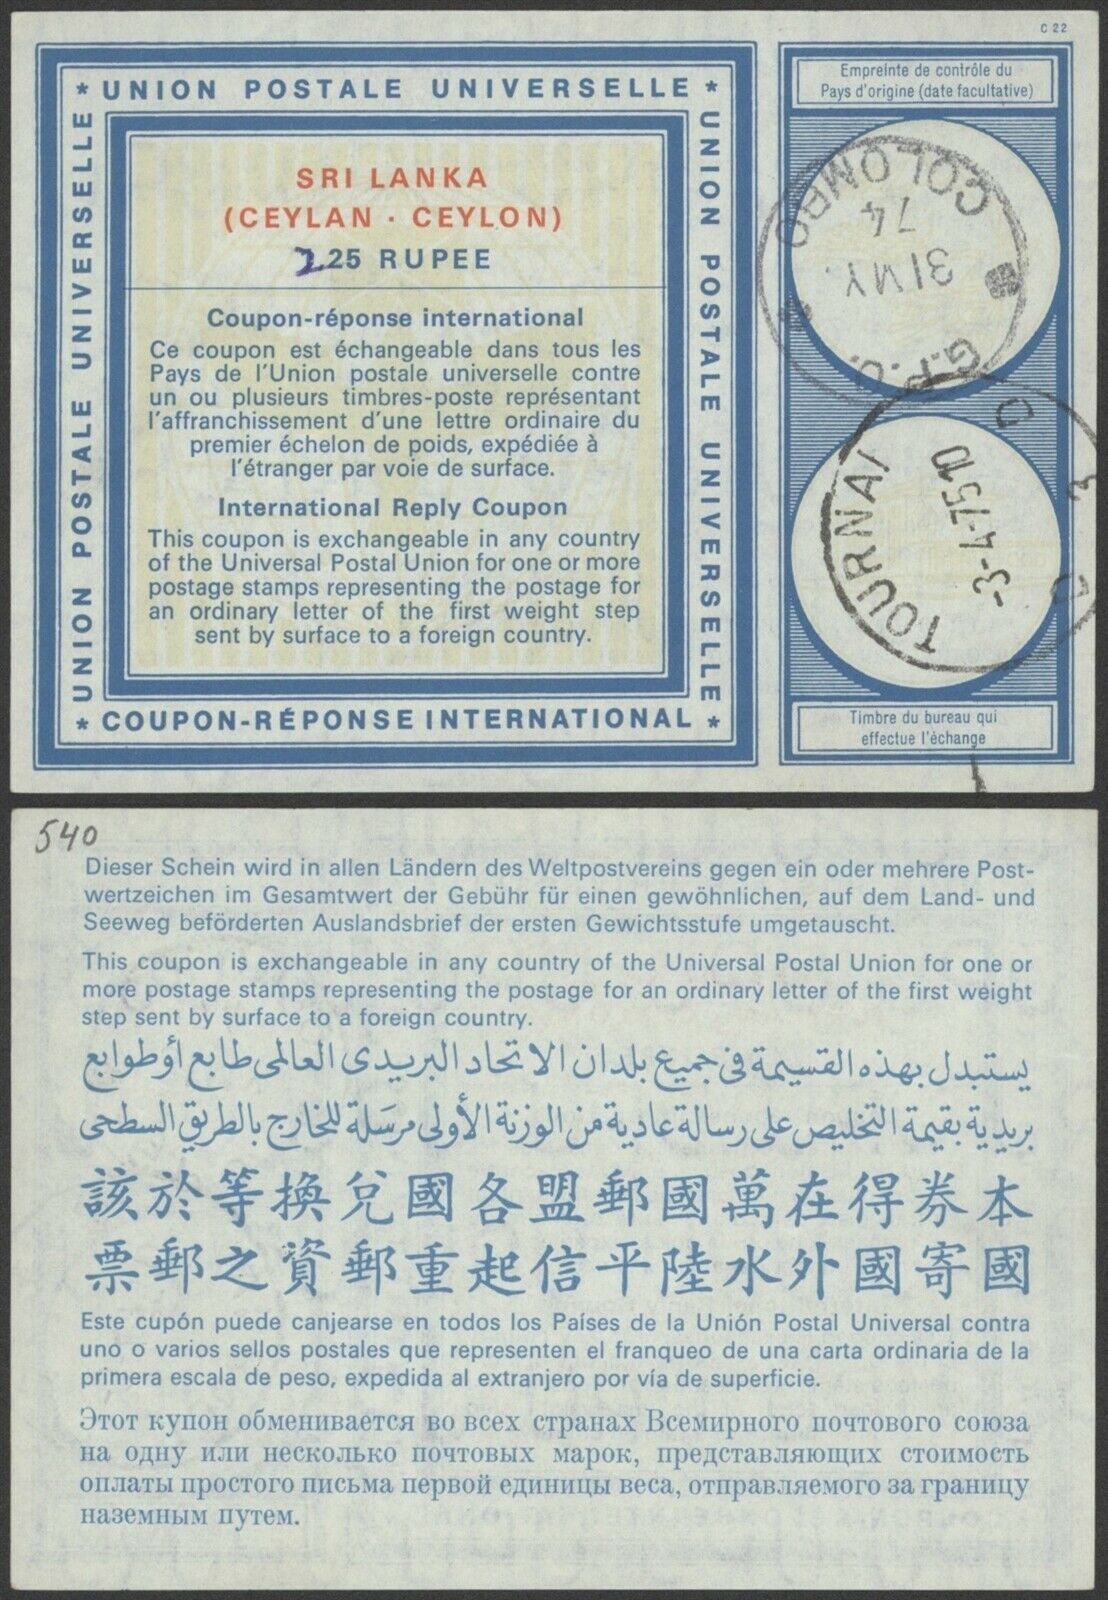 C 22
* UNION POSTALE UNIVERSELLE *
UNION POSTALE UNIVERSELLE
UNION POSTALE UNIVERSELLE
SRI LANKA
(CEYLAN · CEYLON)
2.25 RUPEE
Coupon-réponse international
Ce coupon est échangeable dans tous les
Pays de l'Union postale universelle contre
un ou plusieurs timbres-poste représentant
l'affranchissement d'une lettre ordinaire du
premier échelon de poids, expédiée à
l'étranger par voie de surface.
International Reply Coupon
This coupon is exchangeable in any country
of the Universal Postal Union for one or more
postage stamps representing the postage for
an ordinary letter of the first weight step
sent by surface to a foreign country.
* COUPON-RÉPONSE INTERNATIONAL *
Empreinte de contrôle du
Pays d'origine (date facultative)
G.P.O.
COLOMBO
31 MY.
74
TOURNAI
-3-4-75 10
Timbre du bureau qui
effectue l'échange
540
Dieser Schein wird in allen Ländern des Weltpostvereins gegen ein oder mehrere Post-
wertzeichen im Gesamtwert der Gebühr für einen gewöhnlichen, auf dem Land- und
Seeweg beförderten Auslandsbrief der ersten Gewichtsstufe umgetauscht.
This coupon is exchangeable in any country of the Universal Postal Union for one or
more postage stamps representing the postage for an ordinary letter of the first weight
step sent by surface to a foreign country.
يستبدل بهذه القسيمة في جميع بلدان الاتحاد البريدى العالمى طابع أوطوابع
بريدية بقيمة التخليص على رسالة عادية من الوزنة الأولى مرسَلة للخارج بالطريق السطحى
該於等換兌國各盟郵國萬在得券本
票郵之資郵重起信平陸水外國寄國
Este cupón puede canjearse en todos los Países de la Unión Postal Universal contra
uno o varios sellos postales que representen el franqueo de una carta ordinaria de la
primera escala de peso, expedida al extranjero por vía de superficie.
Этот купон обменивается во всех странах Всемирного почтового союза
на одну или несколько почтовых марок, представляющих стоимость
оплаты простого письма первой единицы веса, отправляемого за границу
наземным путем.